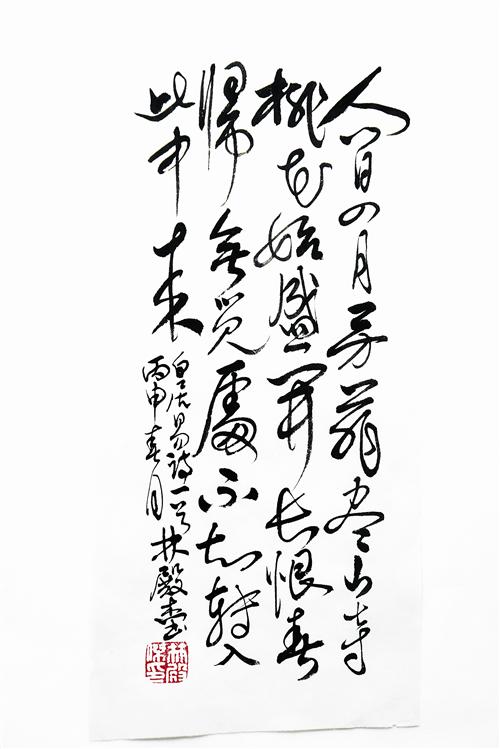 人間四月芳菲尽山寺
桃花始盛開长恨春
帰無覓處不知轉入
此中来
白居易诗一首
丙申春月
林殿杰
林殿傑印